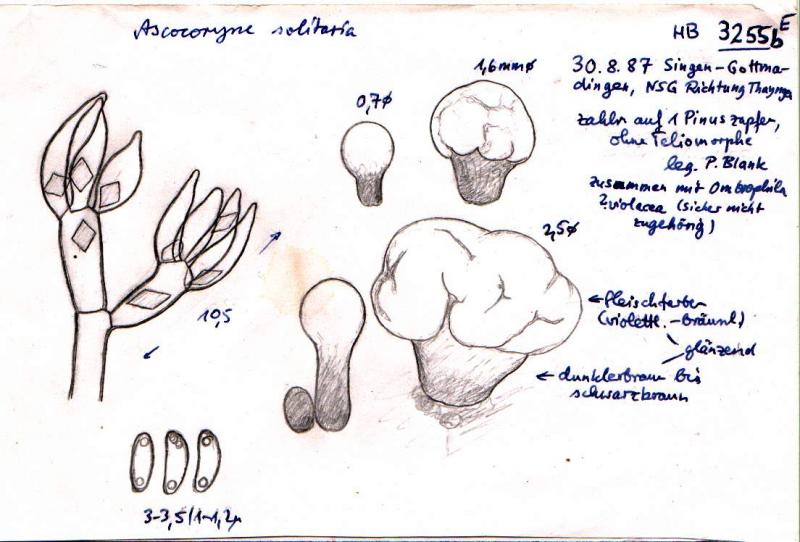 Ascocoryne solitaria
HB 3255b E
30.8.87 Singen-Gottma-
dingen, NSG Richtung Thaynge
zahlr. auf 1 Pinuszapfen,
ohne Teliomorphe
leg. P. Blank
zusammen mit Ombrophila
? violacea (sicher nicht
zugehörig)
0,7ø
1,6mmø
2,5ø
←fleischfarben
(violettl.-bräunl.)
glänzend
← dunklerbraun bis
schwarzbraun
10,5
3-3,5/1-1,2µ